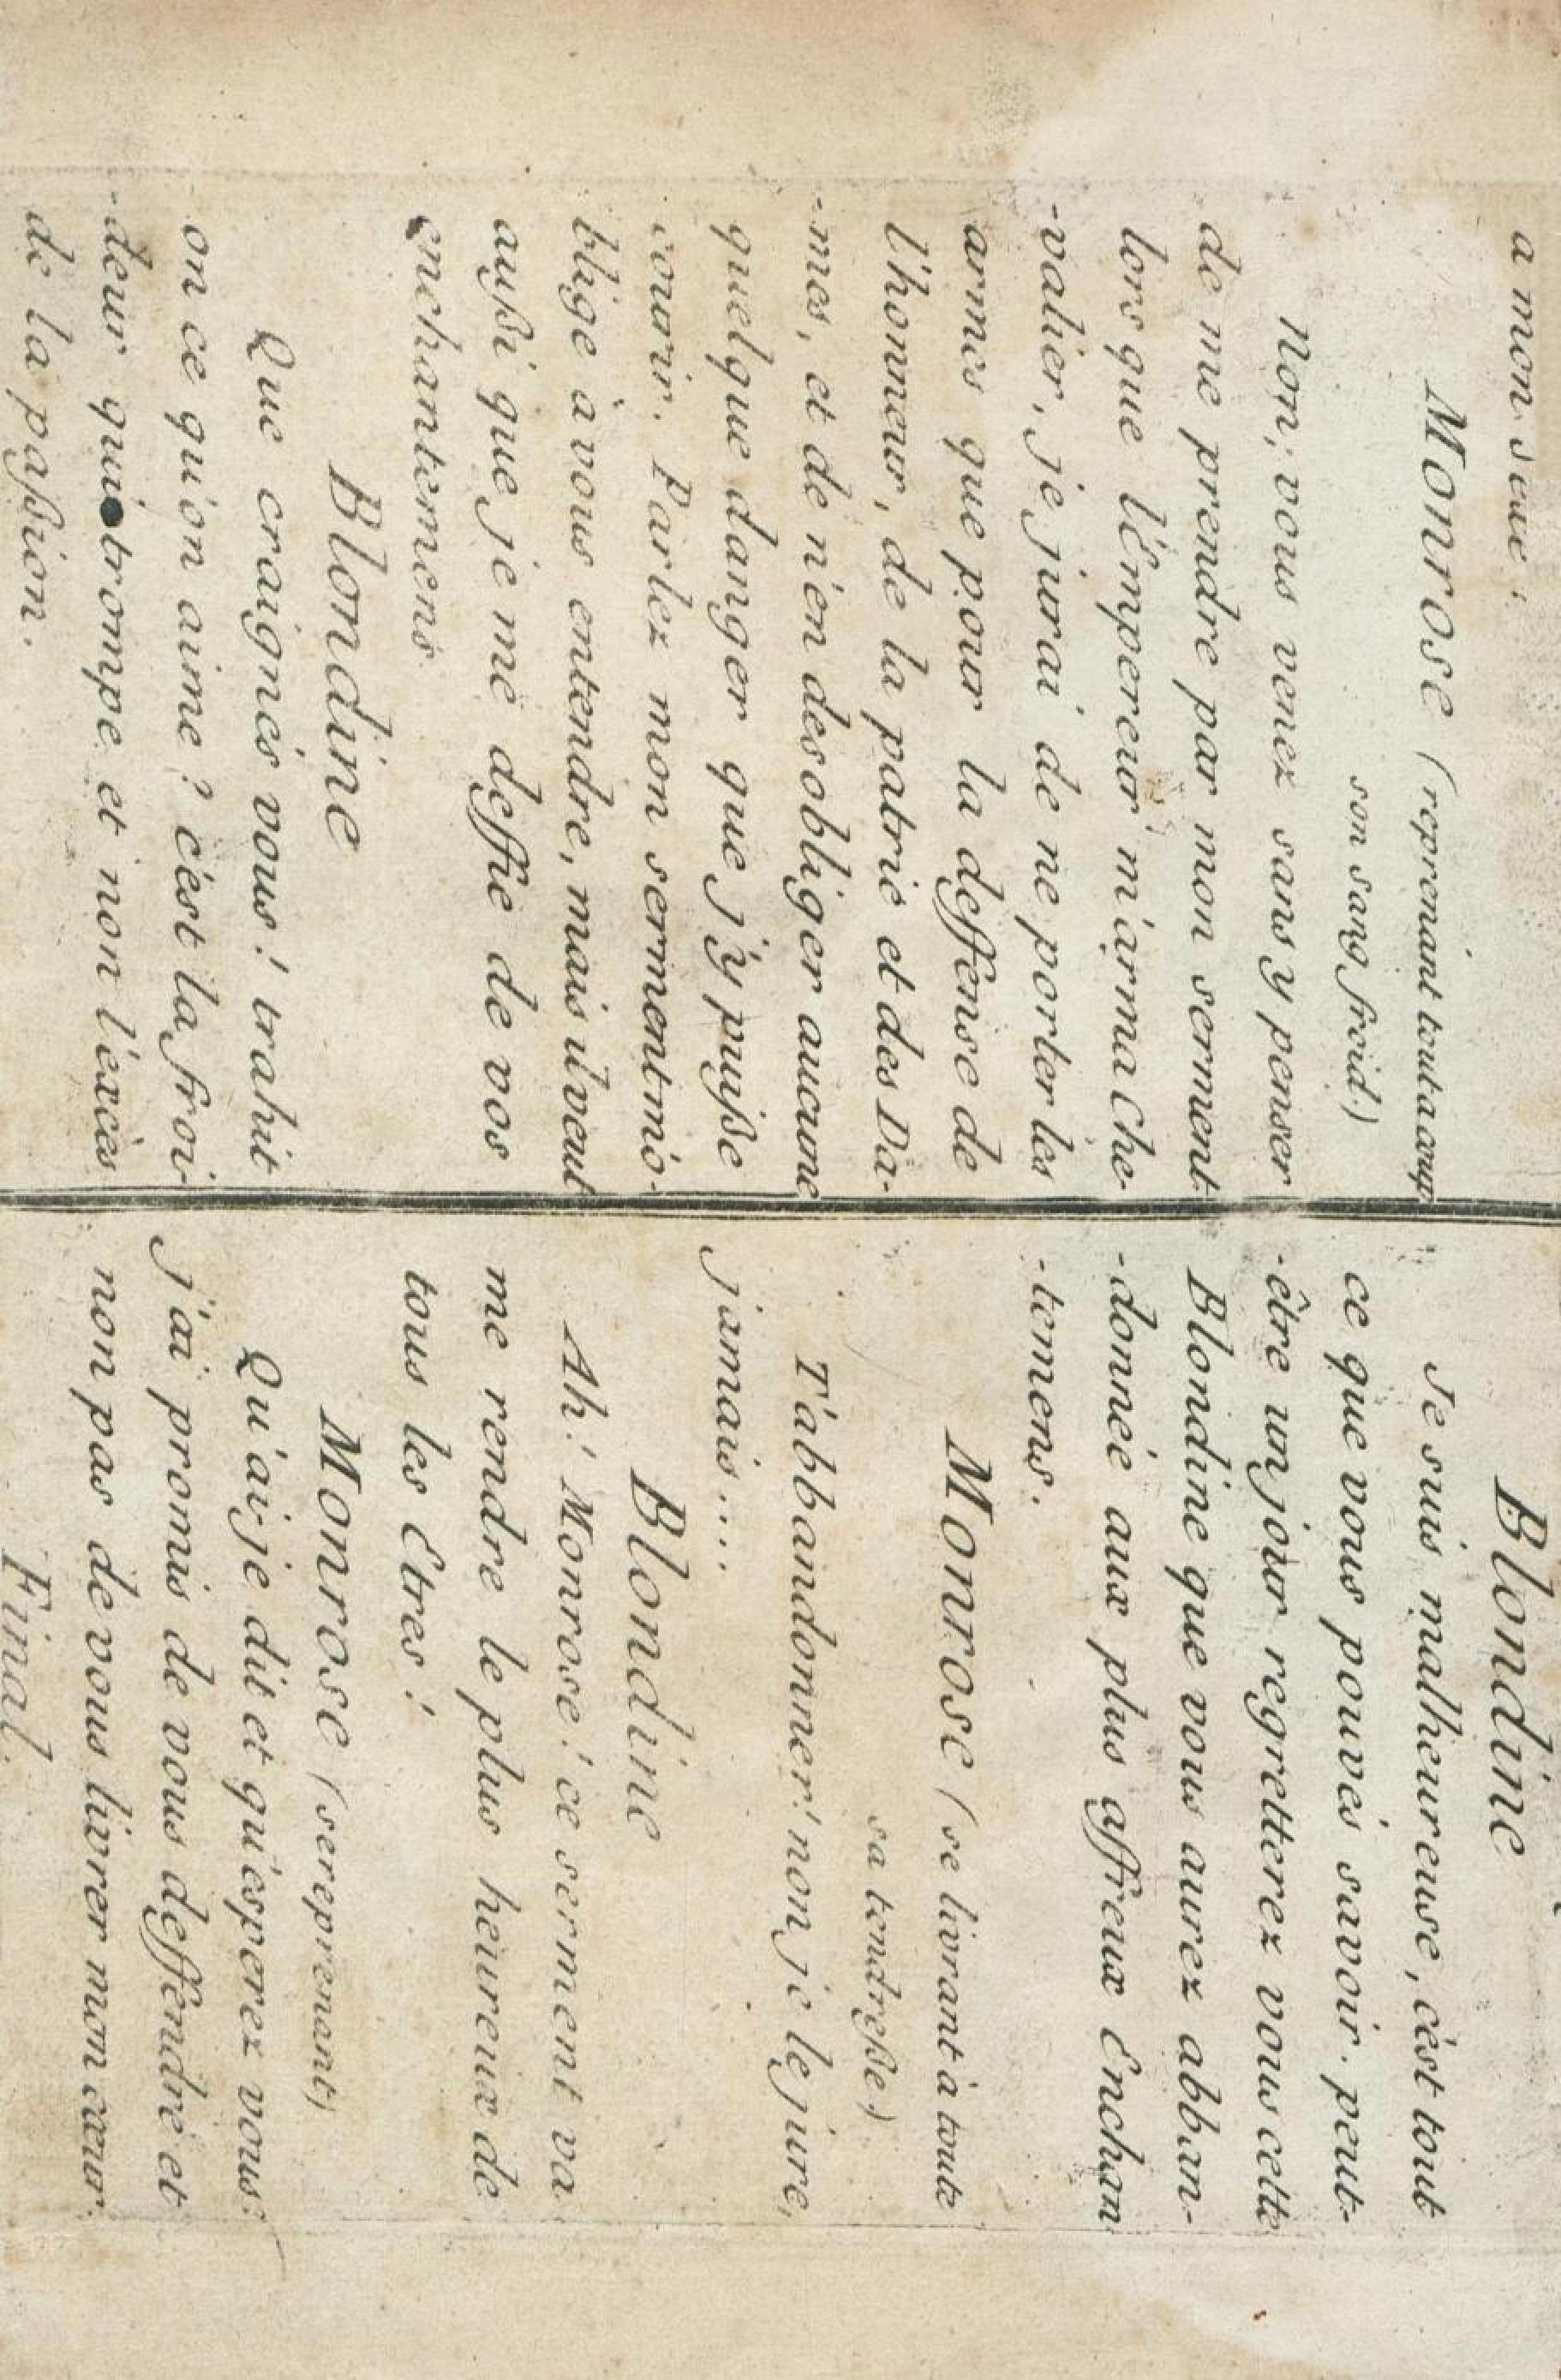 a mon scue;
Monrose (reprenant tout a coup
son sang froid.)
Non, vous venez sans y penser
de me prendre par mon serment
lors que l'Empereur m'arma Che-
-valier, je jurai de ne porter les
armes que pour la deffense de
l'honneur, de la patrie et des Da-
-mes, et de n'en desobliger aucune
quelque danger que j'y puisse
courir. Parlez mon serment m'o-
blige à vous entendre, mais il veut
aussi que je me deffie de vos
enchantemens.
Blondine
Que craignés vous! trahit
on ce qu'on aime? c'est la froi-
-deur qui trompe et non l'excès
de la passion.
Blondine
Je suis malheureuse, c'est tout
ce que vous pouvés savoir. peut-
-être un jour regretterez vous cette
Blondine que vous aurez abban-
-donnée aux plus affreux Enchan
-temens.
Monrose (se livrant à toute
sa tendresse)
T'abbandonner! non je le jure,
jamais....
Blondine
Ah! Monrose! ce serment va
me rendre le plus heureux de
tous les Etres!
Monrose (se reprenant)
Qu'ai je dit et qu'esperez vous:
j'ai promis de vous deffendre et
non pas de vous livrer mon cœur.
Final.